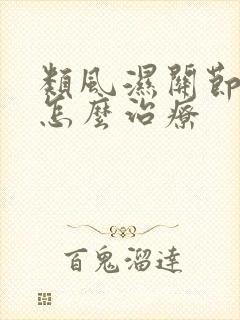 類風濕關節
怎麼治療
百鬼溜達